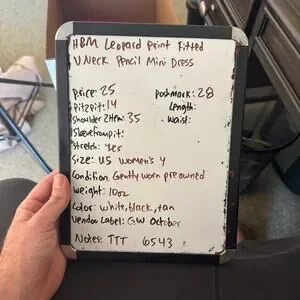 H&M Leopard Print Fitted
V Neck Pencil Mini Dress
Price: 25 Postmark: 28
Pit2pit: 14 Length:
Shoulder 2Hem: 35 Waist:
Sleevefrompit:
Stretch: Yes
Size: US Women's 4
Condition: Gently worn preowned
Weight: 10oz
Color: white, black, tan
Vendoo Label: GW October
Notes: TTT 6543